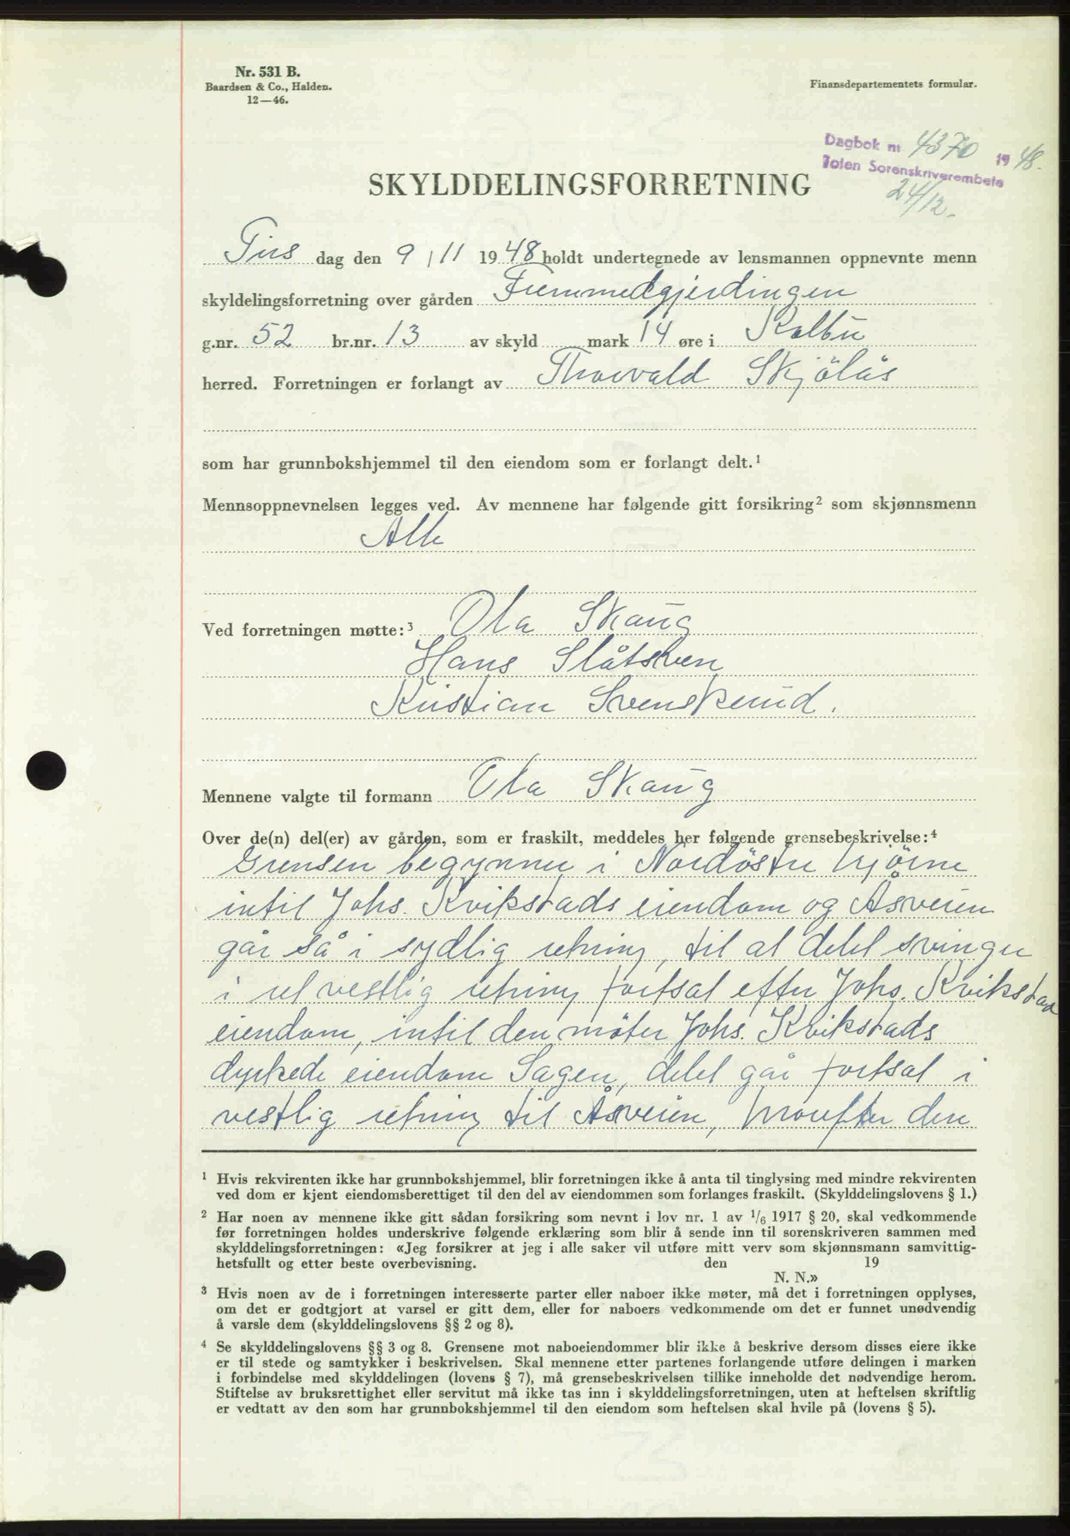 Nr. 531 B.
Baardsen & Co., Halden.
12—46.
Finansdepartementets formular.
Dagbok nr 4370 1948.
Toten Sorenskriverembete
24/12.
SKYLDDELINGSFORRETNING
Tirs dag den 9/11 1948 holdt undertegnede av lensmannen oppnevnte menn
skyldelingsforretning over gården Fremmedgjerdingen
g.nr. 52 br.nr. 13 av skyld mark 14 øre i Kolbu
herred. Forretningen er forlangt av Thorvald Skjölås
som har grunnbokshjemmel til den eiendom som er forlangt delt.¹
Mennsoppnevnelsen legges ved. Av mennene har følgende gitt forsikring² som skjønnsmenn
Alle
Ved forretningen møtte:³ Ola Skaug
Hans Slåtsveen
Kristian Svenskerud.
Mennene valgte til formann Ola Skaug
Over de(n) del(er) av gården, som er fraskilt, meddeles her følgende grensebeskrivelse:⁴
Grensen begynner i Nordöstre hjörne
intil Johs. Kvikstads eiendom og Åsveien
går så i sydlig retning, til at delet svinger
i ret vestlig retning fortsat efter Johs. Kvikstads
eiendom, intil den möter Johs. Kvikstads
dyrkede eiendom Sagen, delet går fortsat i
vestlig retning til Åsveien, hvorefter den
¹ Hvis rekvirenten ikke har grunnbokshjemmel, blir forretningen ikke å anta til tinglysing med mindre rekvirenten
ved dom er kjent eiendomsberettiget til den del av eiendommen som forlanges fraskilt. (Skylddelingslovens § 1.)
² Har noen av mennene ikke gitt sådan forsikring som nevnt i lov nr. 1 av 1/6 1917 § 20, skal vedkommende
før forretningen holdes underskrive følgende erklæring som blir å sende inn til sorenskriveren sammen med
skylddelingsforretningen: «Jeg forsikrer at jeg i alle saker vil utføre mitt verv som skjønnsmann samvittig-
hetsfullt og etter beste overbevisning. den 19
N. N.»
³ Hvis noen av de i forretningen interesserte parter eller naboer ikke møter, må det i forretningen opplyses,
om det er godtgjort at varsel er gitt dem, eller for naboers vedkommende om det er funnet unødvendig
å varsle dem (skylddelingslovens §§ 2 og 8).
⁴ Se skylddelingslovens §§ 3 og 8. Grensene mot naboeiendommer blir ikke å beskrive dersom disses eiere ikke
er til stede og samtykker i beskrivelsen. Skal mennene etter partenes forlangende utføre delingen i marken
i forbindelse med skylddelingen (lovens § 7), må grensebeskrivelsen tillike inneholde det nødvendige herom.
Stiftelse av bruksrettighet eller servitut må ikke tas inn i skylddelingsforretningen, uten at heftelsen skriftlig
er vedtatt av den som har grunnbokshjemmel til den eiendom som heftelsen skal hvile på (lovens § 5).